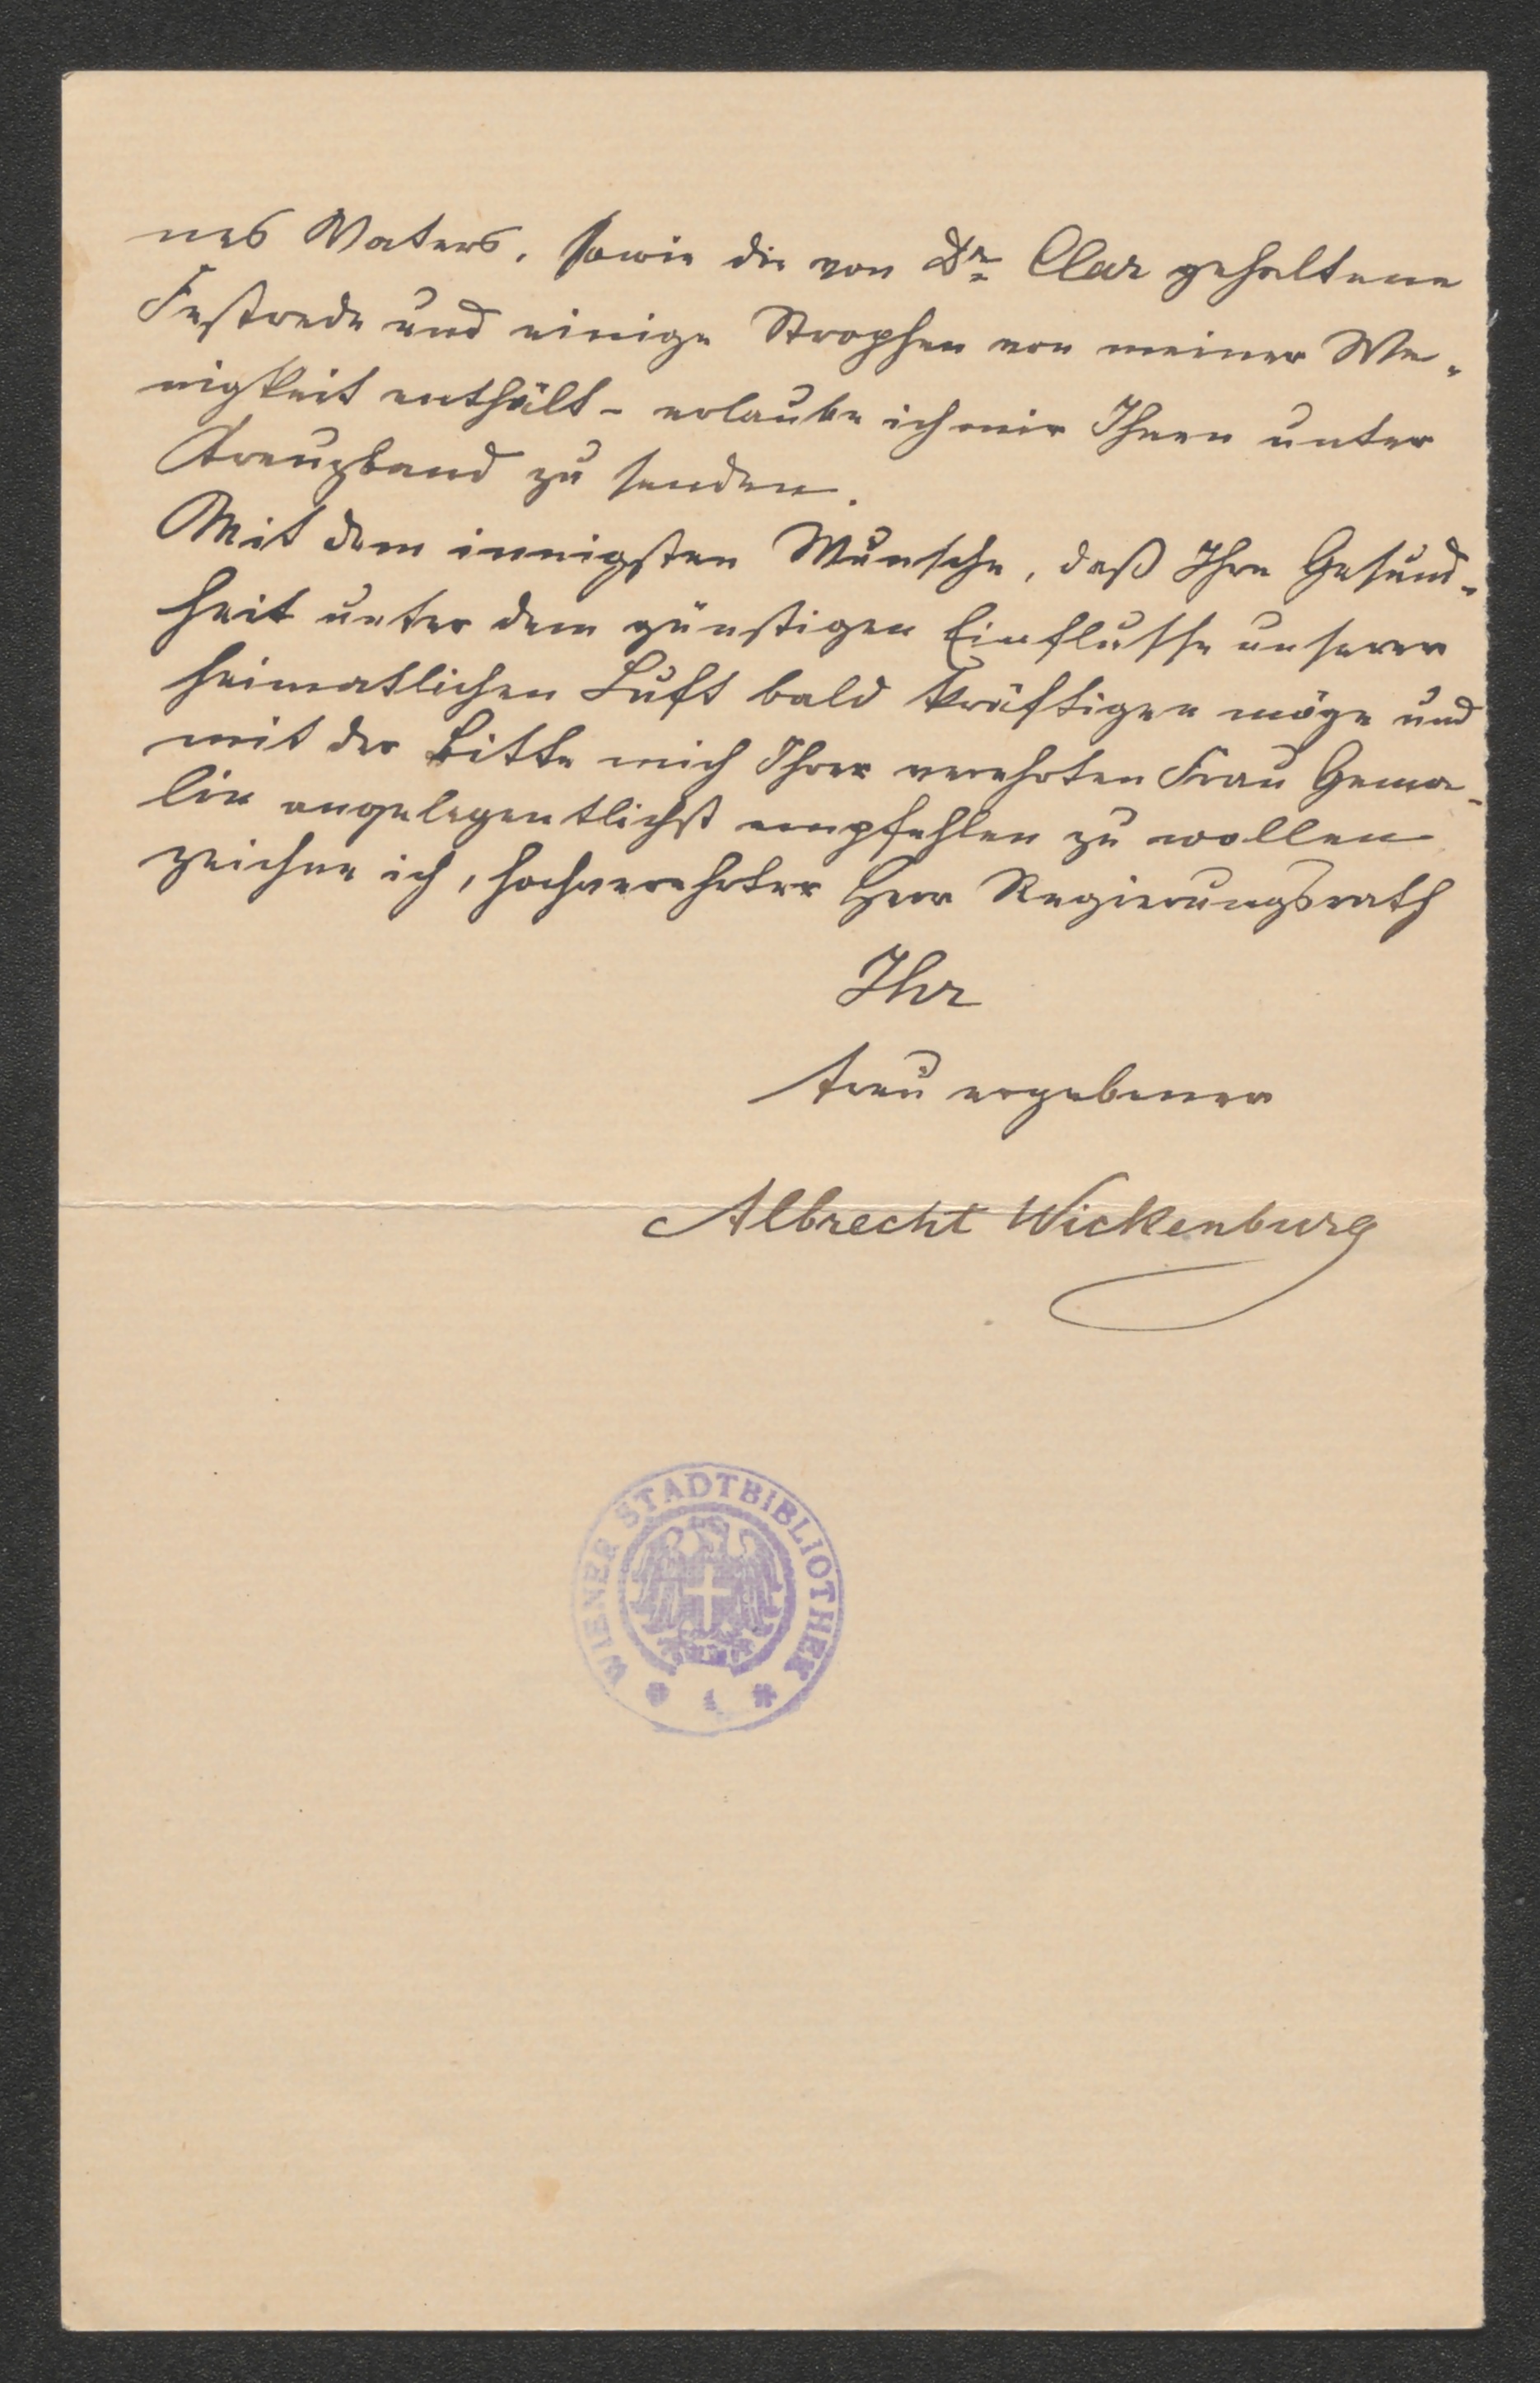 nes Vaters, sowie die von Dr Clar gehaltene
Festrede und einige Strophen von meiner We-
nigkeit enthält – erlaube ich mir Ihnen unter
Kreuzband zu senden.
Mit dem innigsten Wunsche, daß Ihre Gesund-
heit unter dem günstigen Einflusse unserer
heimatlichen Luft bald kräftigen möge und
mit der Bitte mich Ihrer verehrten Frau Gema-
lin angelegentlichst empfehlen zu wollen
zeichne ich, hochverehrter Herr Regierungsrath
Ihr
treu ergebener
Albrecht Wickenburg
WIENER STADTBIBLIOTHEK